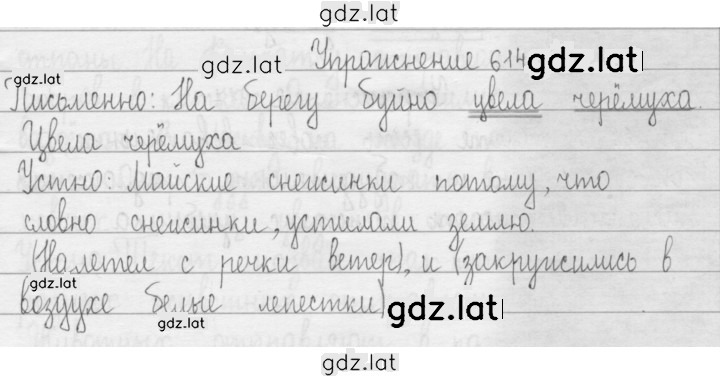 gdz.lat
Упражнение 614
gdz.lat
gdz.lat
gdz.lat
Письменно: На берегу буйно цвела черёмуха.
Цвела черёмуха
Устно: Майские снежинки потому, что
словно снежинки, устилали землю.
(Налетел с речки ветер), и (закружились в
gdz.lat
воздухе белые лепестки)
gdz.lat
gdz.lat
gdz.lat